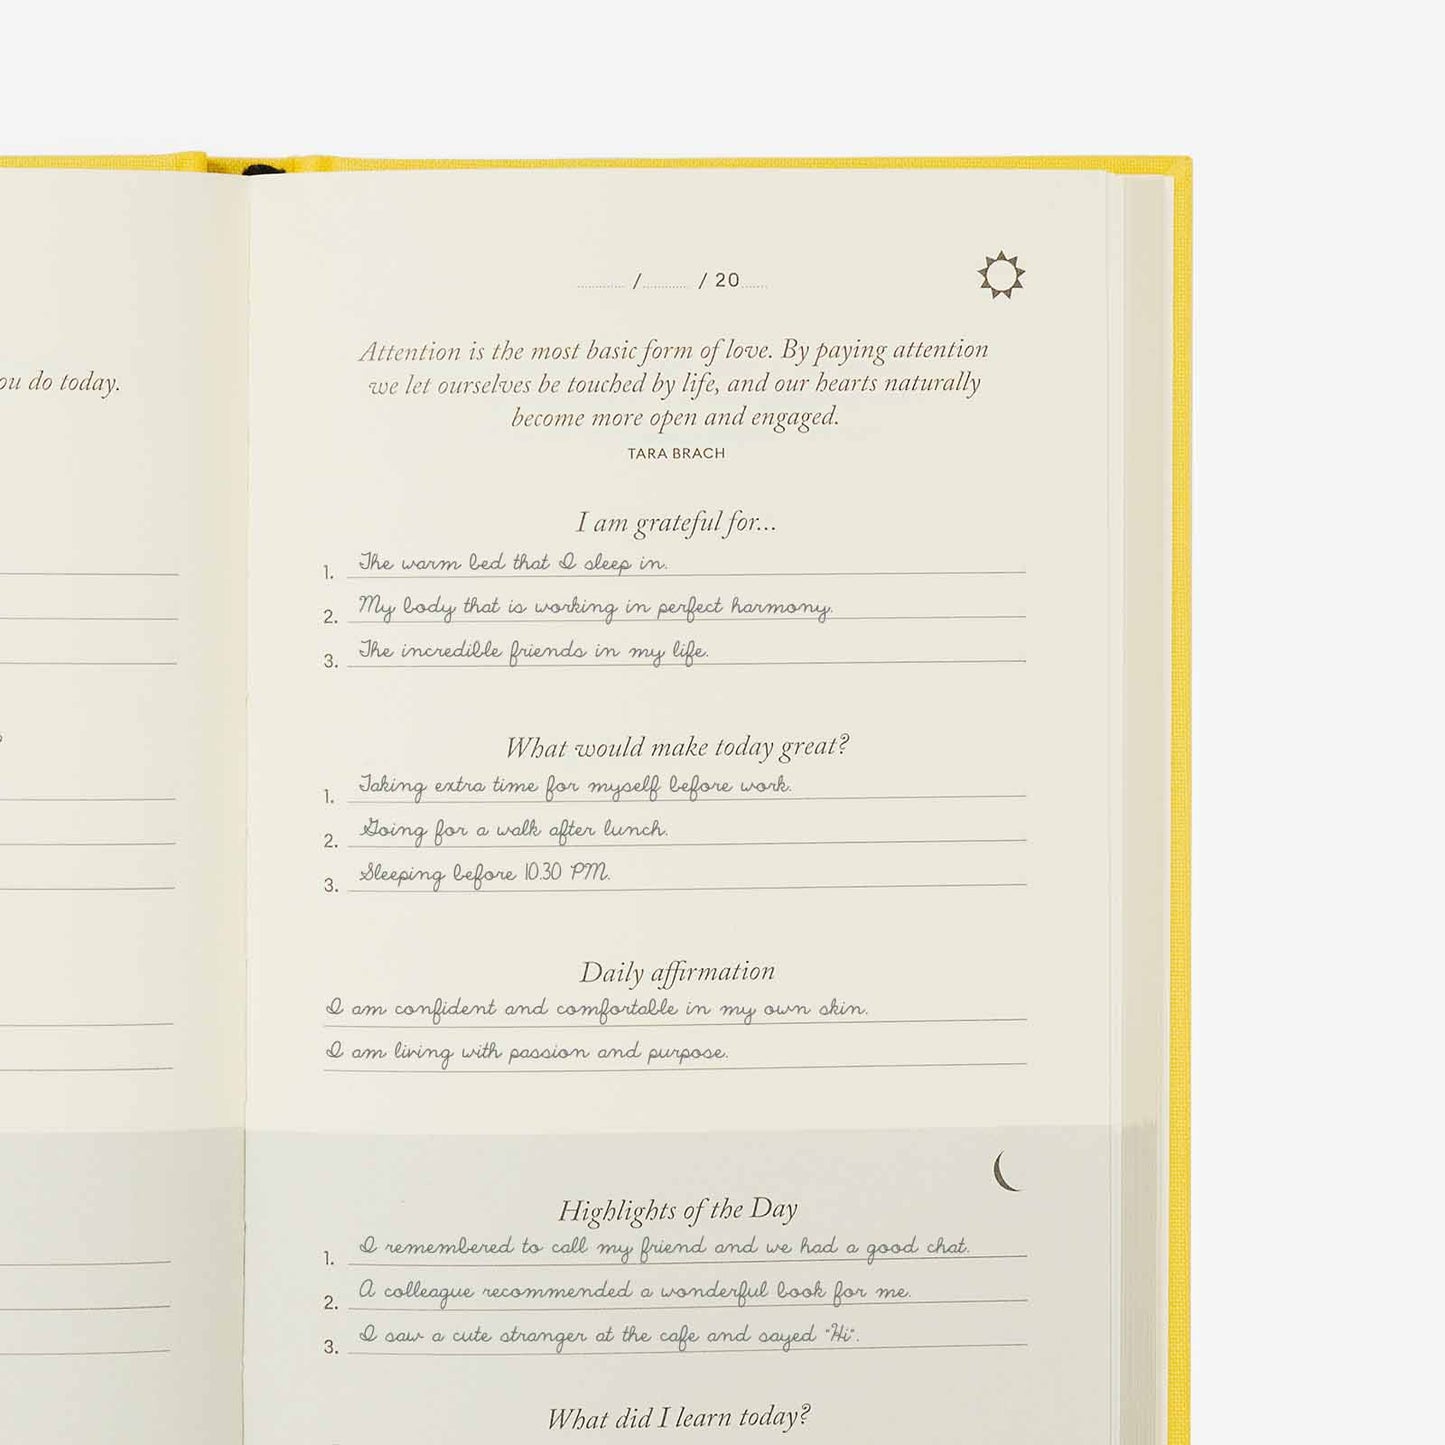 ou do today.
/ / 20
Attention is the most basic form of love. By paying attention
we let ourselves be touched by life, and our hearts naturally
become more open and engaged.
TARA BRACH
I am grateful for...
1. The warm bed that I sleep in.
2. My body that is working in perfect harmony.
3. The incredible friends in my life.
What would make today great?
1. Taking extra time for myself before work.
2. Going for a walk after lunch.
3. Sleeping before 10.30 PM.
Daily affirmation
I am confident and comfortable in my own skin.
I am living with passion and purpose.
Highlights of the Day
1. I remembered to call my friend and we had a good chat.
2. A colleague recommended a wonderful book for me.
3. I saw a cute stranger at the cafe and sayed "Hi".
What did I learn today?